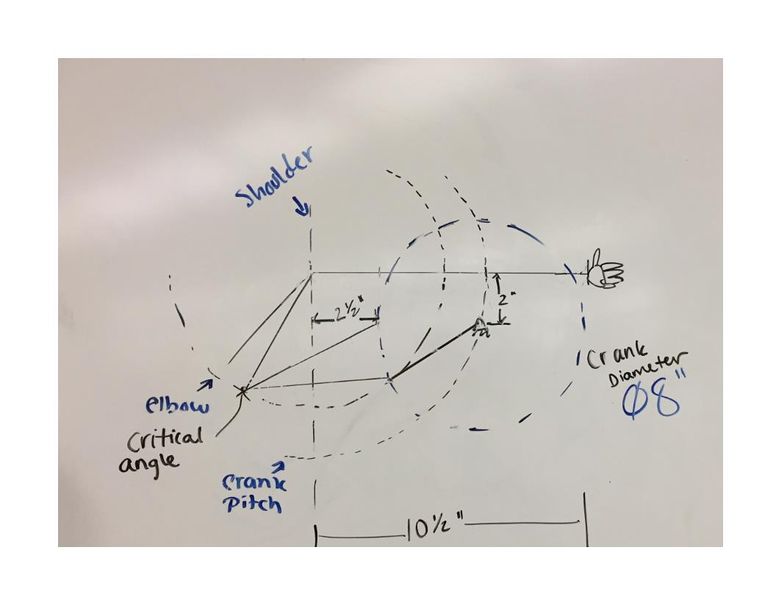 Shoulder
2 1/2"
2"
Crank
Diameter
Ø8"
elbow
Critical
angle
Crank
Pitch
10 1/2"